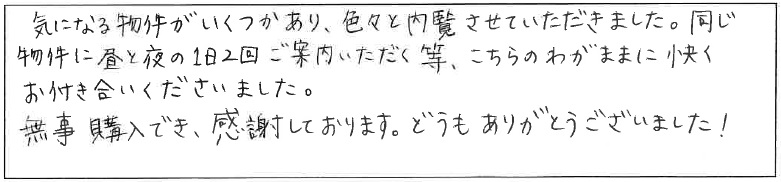 気になる物件がいくつかあり、色々と内覧させていただきました。同じ
物件に昼と夜の1日2回ご案内いただく等、こちらのわがままに快く
お付き合いくださいました。
無事購入でき、感謝しております。どうもありがとうございました！